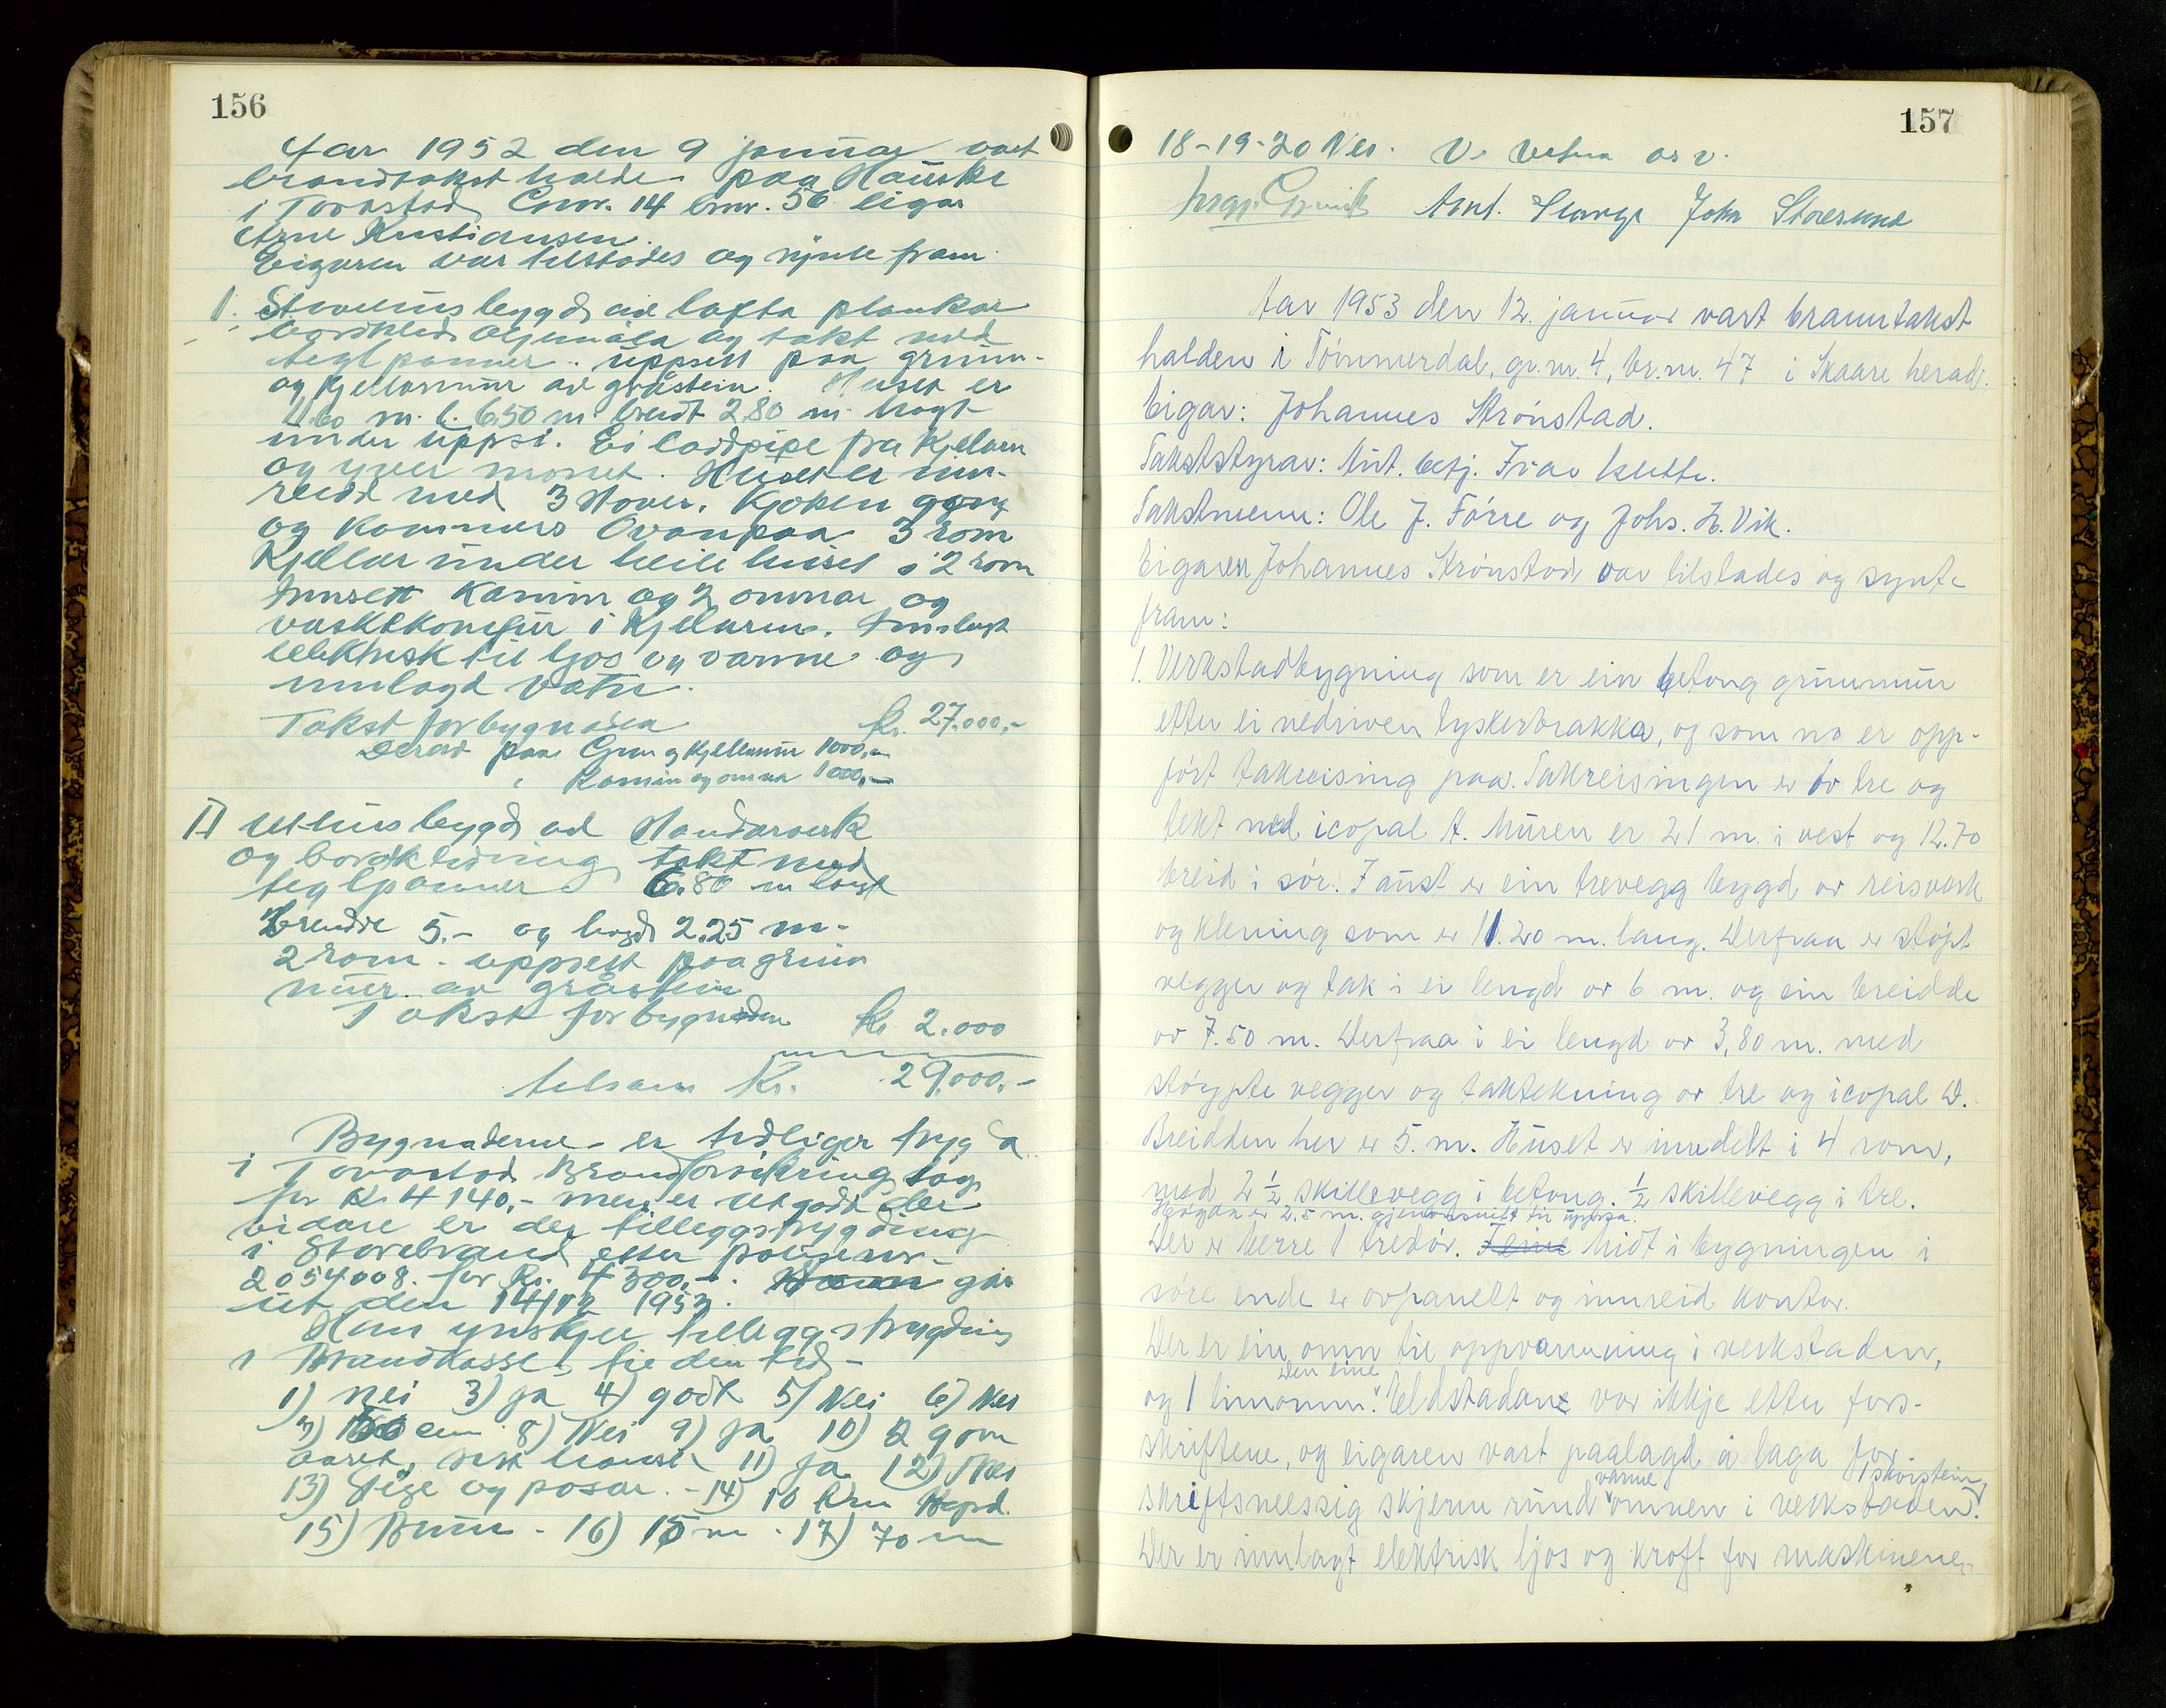 156
Aar 1952 den 9 januar vart
brandtakst halde paa Hauske
i Torvastad Gnr. 14 bnr. 56 eigar
Arne Kristiansen.
Eigaren var tilstades og synte fram
1. Stovehus bygd av lafta plankar
bordkledd oljemåla og takt med
teglpanner. uppsett paa grunn-
og kjellarmur av gråstein. Huset er
11.60 m. l. 6.50 m breidt 2.80 m. høgt
under uppsi. Ei loddpipe fra kjellaren
og yver mønet. Huset er inn-
reidd med 3 stover. kjøken gong
og kammers Ovanpaa 3 rom
Kjellar under heile huset i 2 rom
Innsett kamin og 2 omnar og
vaskekomfur i kjellaren. Innlagt
elektrisk til ljos og varme og
innlagd vatn.
Takst for bygnaden Kr. 27.000.-
Derav paa Grun og kjellarmur 1000.-
" Kamin og omnar 1000.-
II Uthus bygd av standarverk
og bordkledning takt med
teglpanner 6.80 m langt
breudde 5.- og høgd 2.25 m.
2 rom. uppsett paa grunn
mur av gråstein
Takst for bygnaden Kr 2.000
tilsam Kr. 29.000.-
Bygnaderne er tidligere trygda
i Torvastad Brandforsikringslag
for kr. 4140.- men er utgådt der
vidare er der tilleggstrygding
i Storebrand etter polise nr.
2054008. for Kr. 4300.-. går
ut den 14/12 1953.
Han ynskjer tilleggstrygding
i Brandkasse; fie den tid -
1) nei 3) ja 4) godt 5) Nei 6) Nei
7) 50 cm 8) Nei 9) Ja 10) 2 gom
aaret, sist haust 11) Ja 12) Nei
13) Stige og posar. - 14) 10 Km Hgsd.
15) Brunn. 16) 15 m. 17) 70 m
157
18-19-20 Nei. V. Vetna os v.
Ant. Stange John Storesund
Aar 1953 den 12. januar vart branntakst
halden i Tømmerdal, gr.nr. 4, br.nr. 47 i Skaare herad.
Eigar: Johannes Strønstad.
Takststyrar: Aut. betj. Ivar Klette.
Takstmenn: Ole J. Førre og Johs. H. Vik.
Eigaren Johannes Strønstad var tilstades og synte
fram:
1. Verkstadbygning som er ein betong grunnmur
etter ei nedriven tyskerbrakka, og som no er opp-
ført takreising paa. Takreisingen er ov tre og
tekt med icopal A. Muren er 21 m. i vest og 12.70
breid i sør. I aust er ein trevegg bygd ov reisverk
og klening som er 11.20 m. lang. Derfraa er støpt
vegger og tak i ei lengd ov 6 m. og ein breidde
ov 7.50 m. Derfraa i ei lengd ov 3,80 m. med
støypte vegger og taktekning ov tre og icopal D.
Breidden her er 5. m. Huset er inndelt i 4 rom,
med 2 ½ skillevegg i betong. ½ skillevegg i tre.
Høgda er 2,5 m. gjennomsnitt til uppsa.
Der er berre 1 tredør. I eine Midt i bygningen i
søre ende er ovpanelt og innreid kontor.
Der er ein omn til oppvarmning i verkstaden,
den eine
og 1 limomn. Eldstadane var ikkje etter fors-
skriftene, og eigaren vart paalagd å laga for-
varme skorstein
skriftsmessig skjerm rund omnen i verkstaden.
Der er innlagt elektrisk ljos og kraft for maskinene.